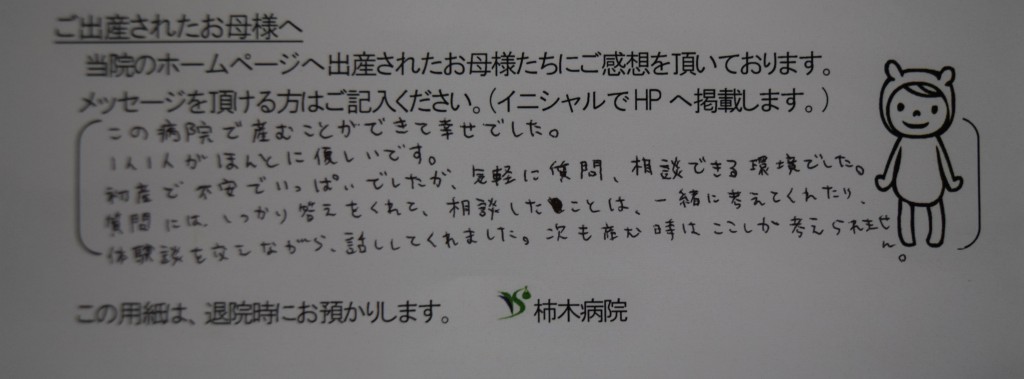 ご出産されたお母様へ
当院のホームページへ出産されたお母様たちにご感想を頂いております。
メッセージを頂ける方はご記入ください。（イニシャルでHPへ掲載します。）
この病院で産むことができて幸せでした。
1人1人がほんとに優しいです。
初産で不安でいっぱいでしたが、気軽に質問、相談できる環境でした。
質問には、しっかり答えをくれて、相談したことは、一緒に考えてくれたり、
体験談を交じながら、話ししてくれました。次も産む時はここしか考えられません。
この用紙は、退院時にお預かりします。
柿木病院